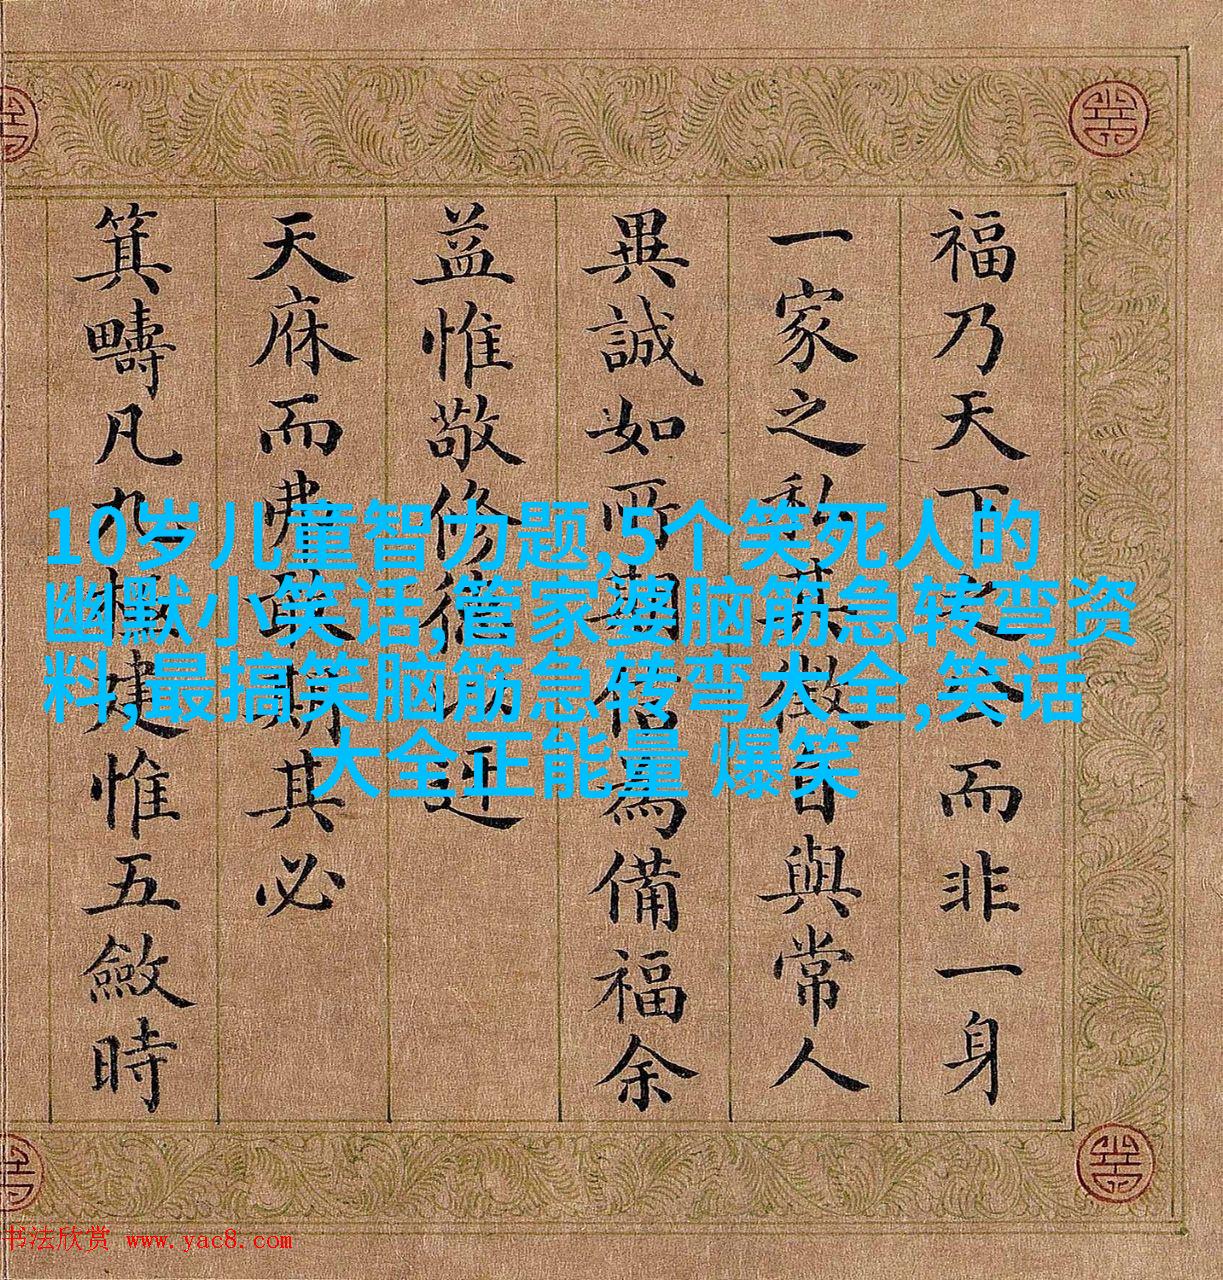 福乃天下之公而非一身
一家之私其徵自與常人
異誠如所期信為備福余
益惟敬修德以迓
天庥而弗敢期其必
箕疇凡九極建惟五斂時
10岁儿童智力题,5个笑死人的
幽默小笑话,管家婆脑筋急转弯资
料,最搞笑脑筋急转弯大全,笑话
大全正能量 爆笑
书法欣赏 www.yac8.com